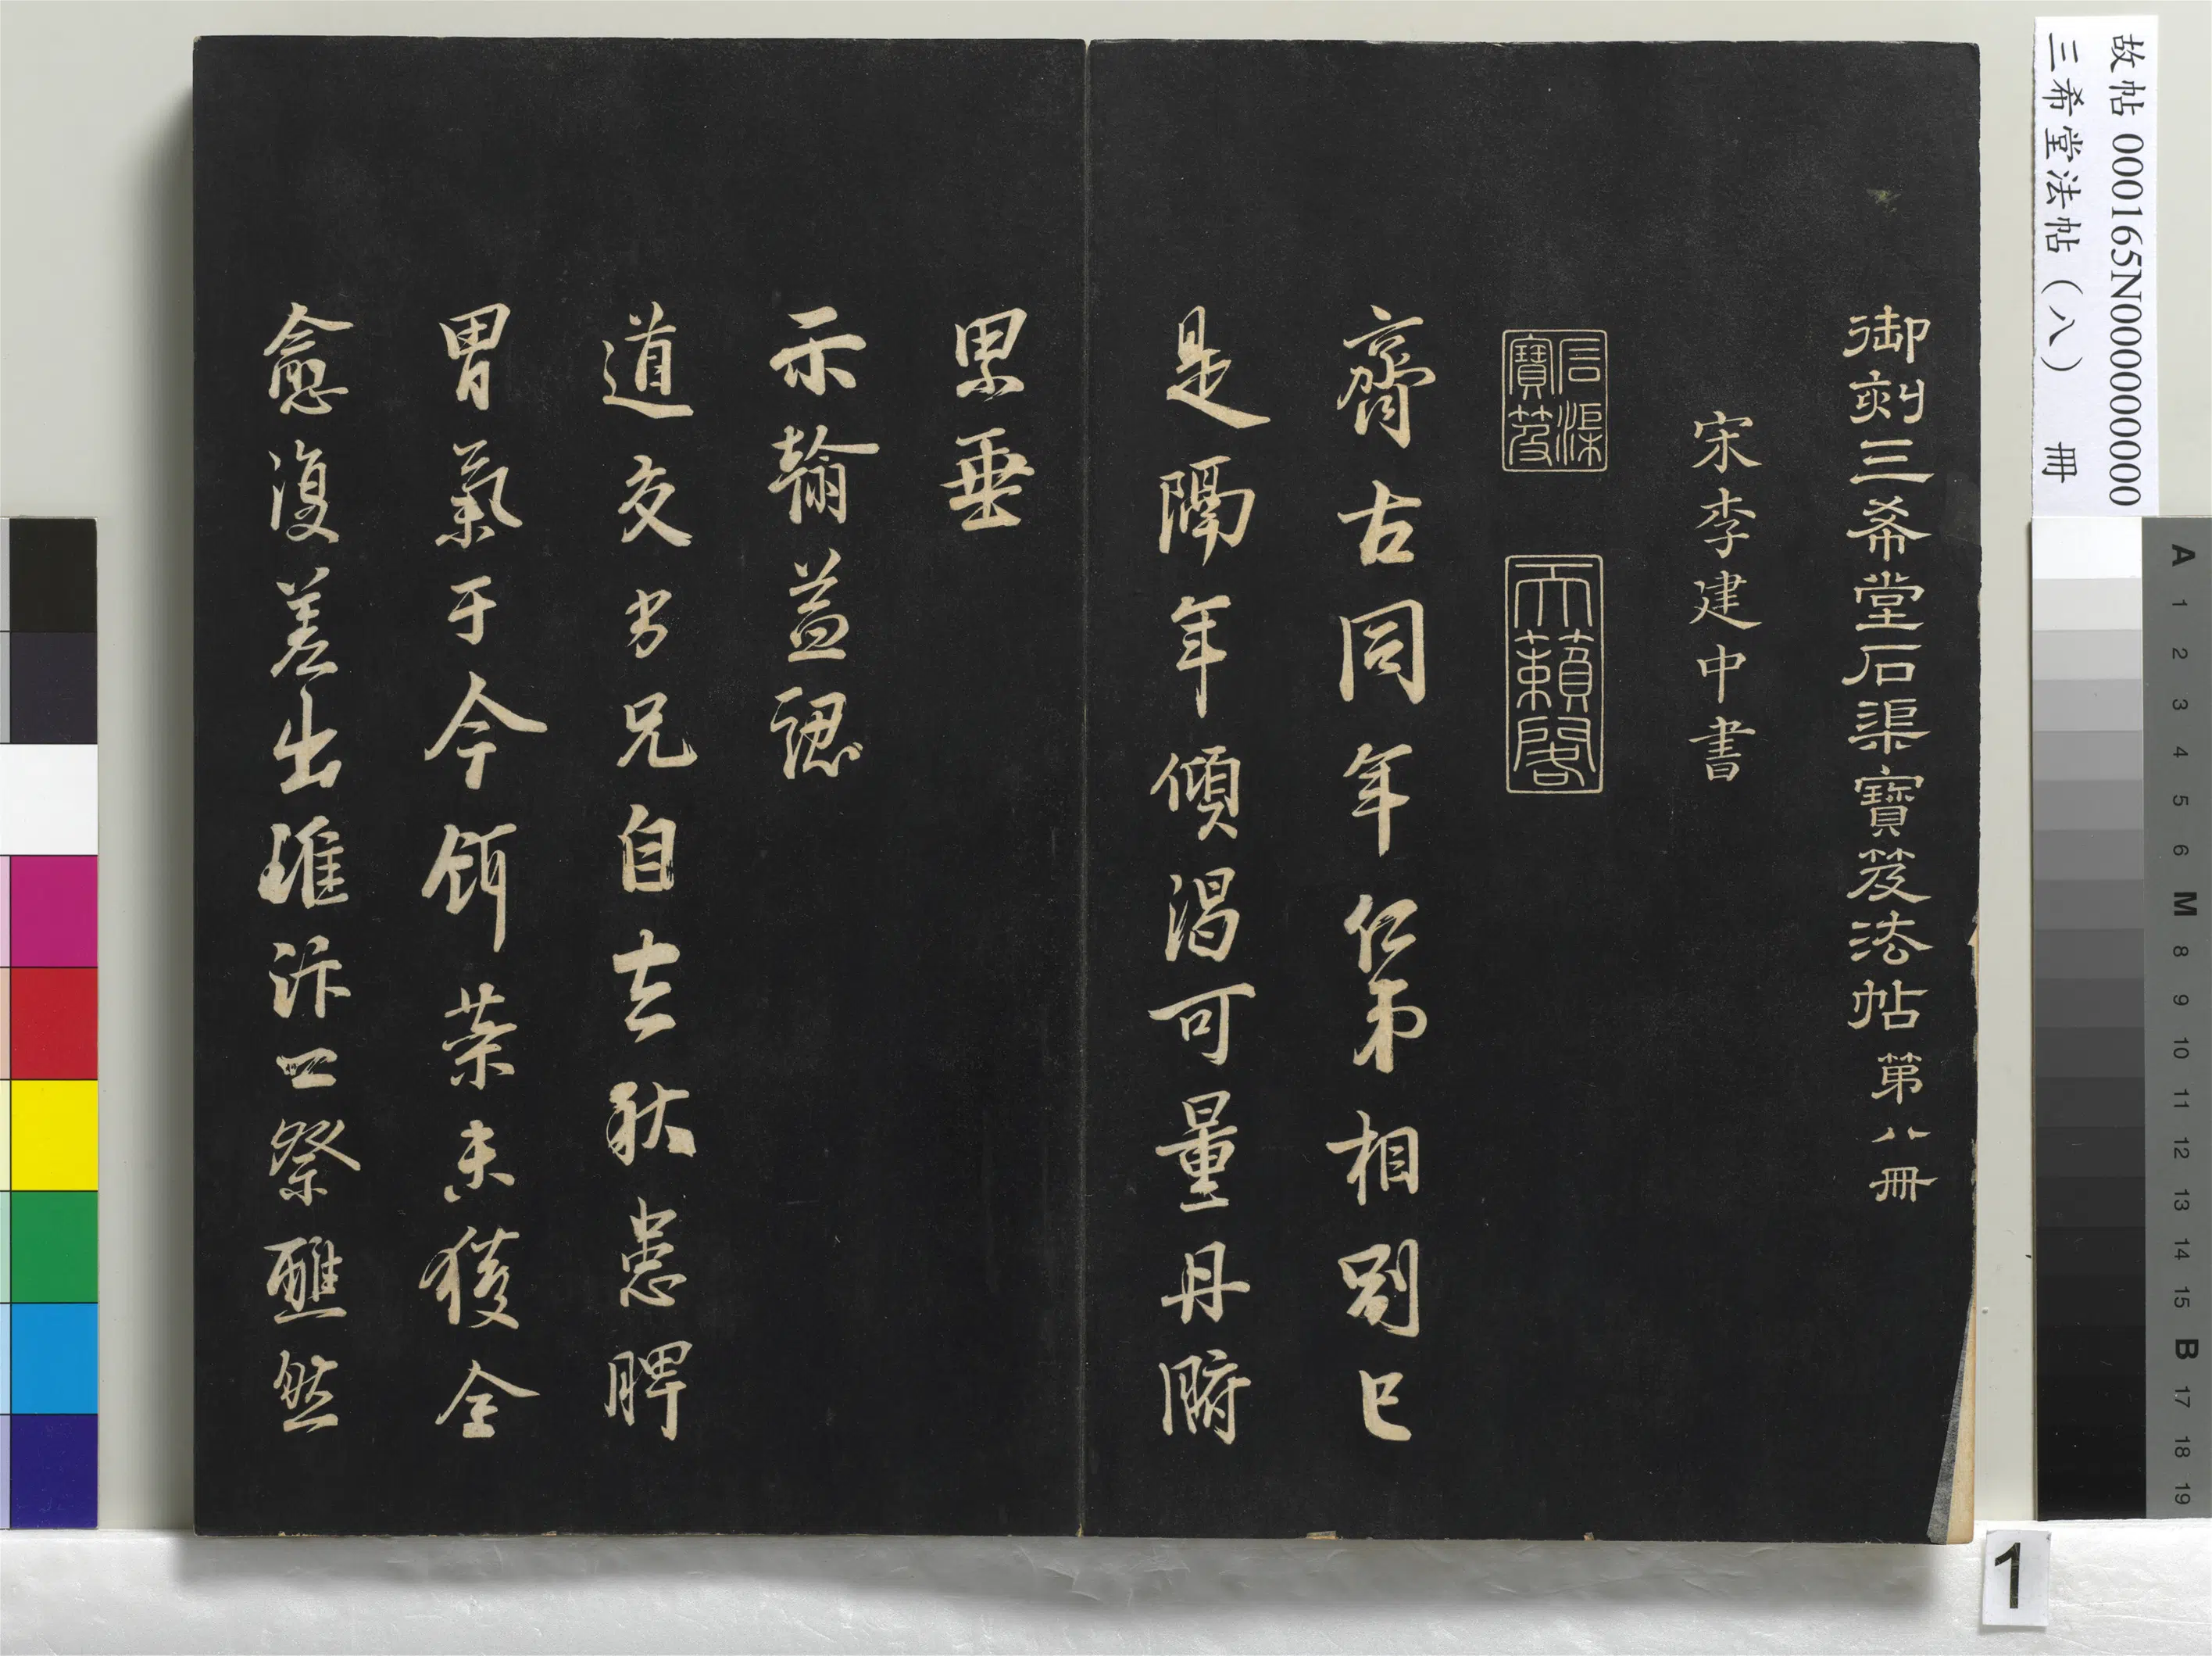 故帖 000165N000000000
三希堂法帖（八） 冊
御刻三希堂石渠寶笈法帖 第八冊
宋李建中書
石渠寶笈
天籟閣
齊古同年仁弟相別已
是隔年傾渴可量丹腑
累垂
示翰益認
道交劣兄自去秋患脾
胃氣于今餌藥未獲全
愈復差出淮汴口祭醮然
A 1 2 3 4 5 6 M 8 9 10 11 12 13 14 15 B 17 18 19
1